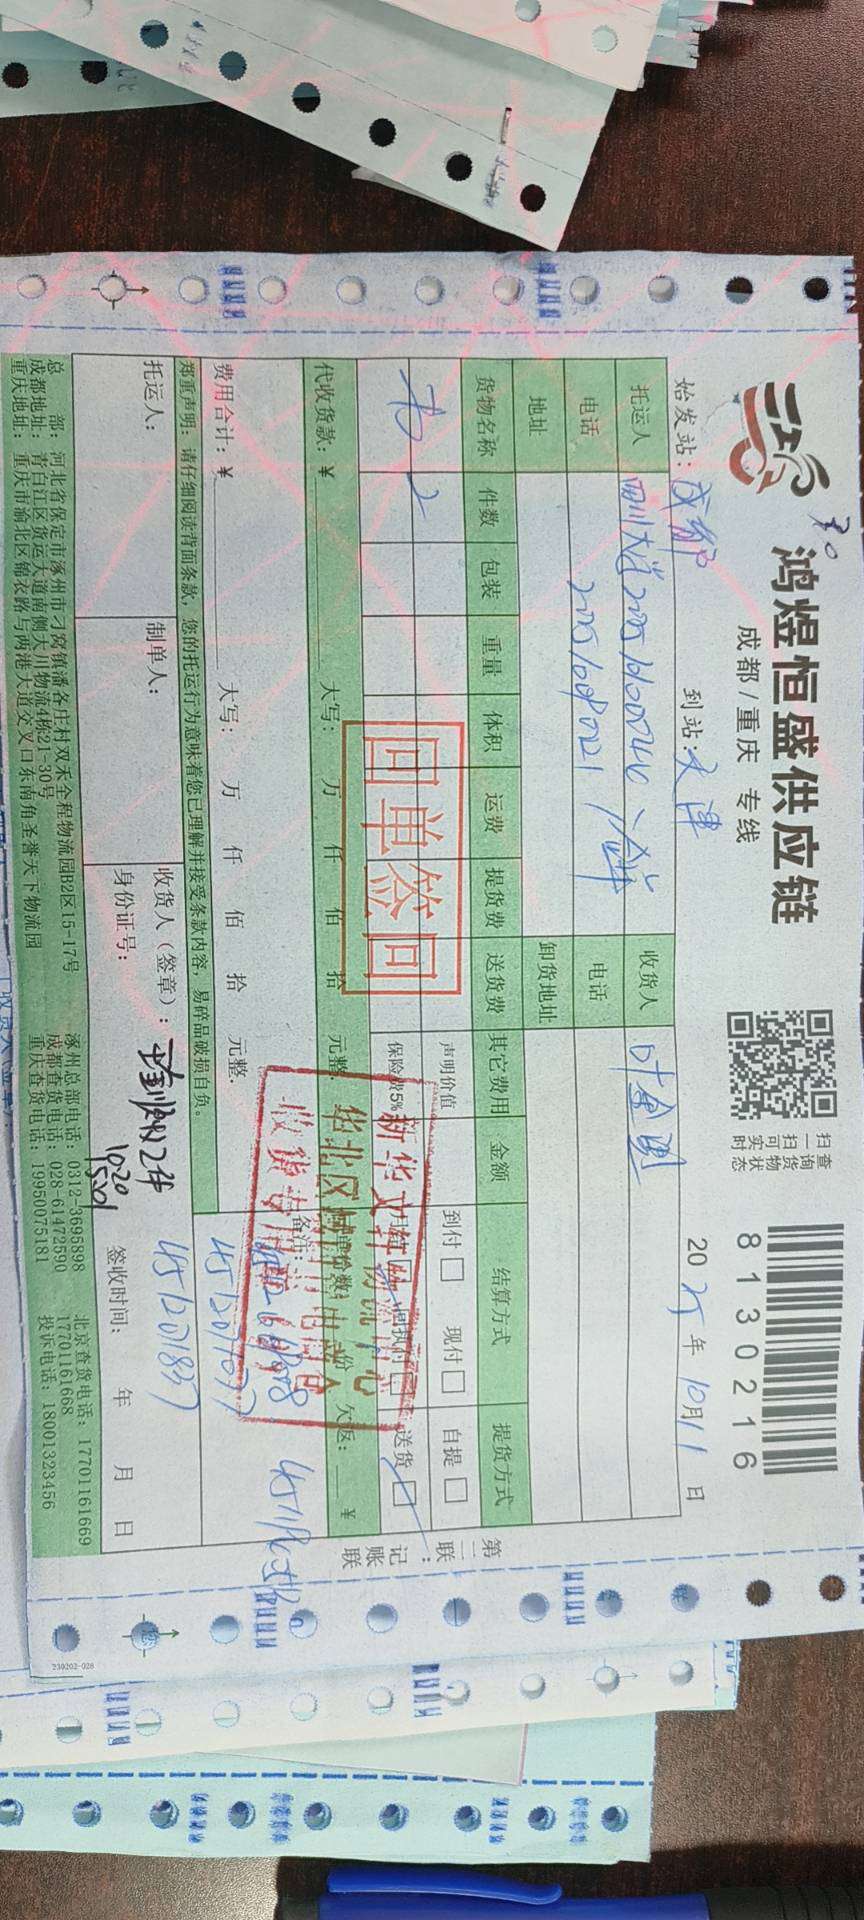 鸿煜恒盛供应链
成都/重庆 专线
查询货物状态
扫一扫可实时
8130216
始发站：成都
到站：天津
2025年10月11日
托运人
收货人
叶金盟
电话
20251008021
电话
地址
卸货地址
货物名称 件数 包装 重量 体积 运费 提货费 送货费 其它费用 金额 结算方式 提货方式
书 2
声明价值
到付□ 现付□
自提□
保险费5‰
月结□ 回执付□
送货□
回单签回
代收货款：￥ 大写： 万 仟 佰 拾 元整.
回单份数: 份 欠返: ￥
费用合计：￥ 大写： 万 仟 佰 拾 元整.
备注:
新华文轩物流中心
华北区域
收货专用章
451201837
郑重声明：请仔细阅读背面条款，您的托运行为意味着您已理解并接受条款内容，易碎品破损自负。
托运人：
制单人：
收货人（签章）：
身份证号：
签收时间： 年 月 日
总 部：河北省保定市涿州市刁窝镇潘各庄村双禾全程物流园B2区15-17号
成都地址：青白江区货运大道南侧大川物流4栋21-30号
重庆地址：重庆市渝北区锦衣路与两港大道交叉口东南角圣誉天下物流园
涿州总部电话：0312-3695898
成都查货电话：028-61472590
重庆查货电话：19950075181
北京查货电话：17701161669
17701161668
投诉电话：18001323456
第二联：记账联
230202-028